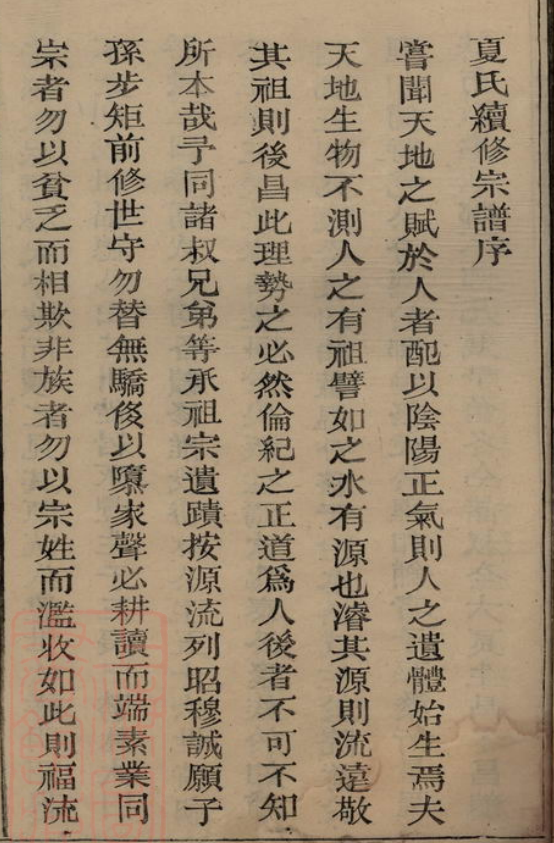 夏氏續修宗譜序
嘗聞天地之賦於人者配以陰陽正氣則人之遺體始生焉夫
天地生物不測人之有祖譬如之水有源也濬其源則流遠敬
其祖則後昌此理勢之必然倫紀之正道爲人後者不可不知
所本哉予同諸叔兄弟等承祖宗遺蹟按源流列昭穆誠願子
孫步矩前修世守勿替無驕侈以隳家聲必耕讀而端素業同
宗者勿以貧乏而相欺非族者勿以宗姓而濫收如此則福流